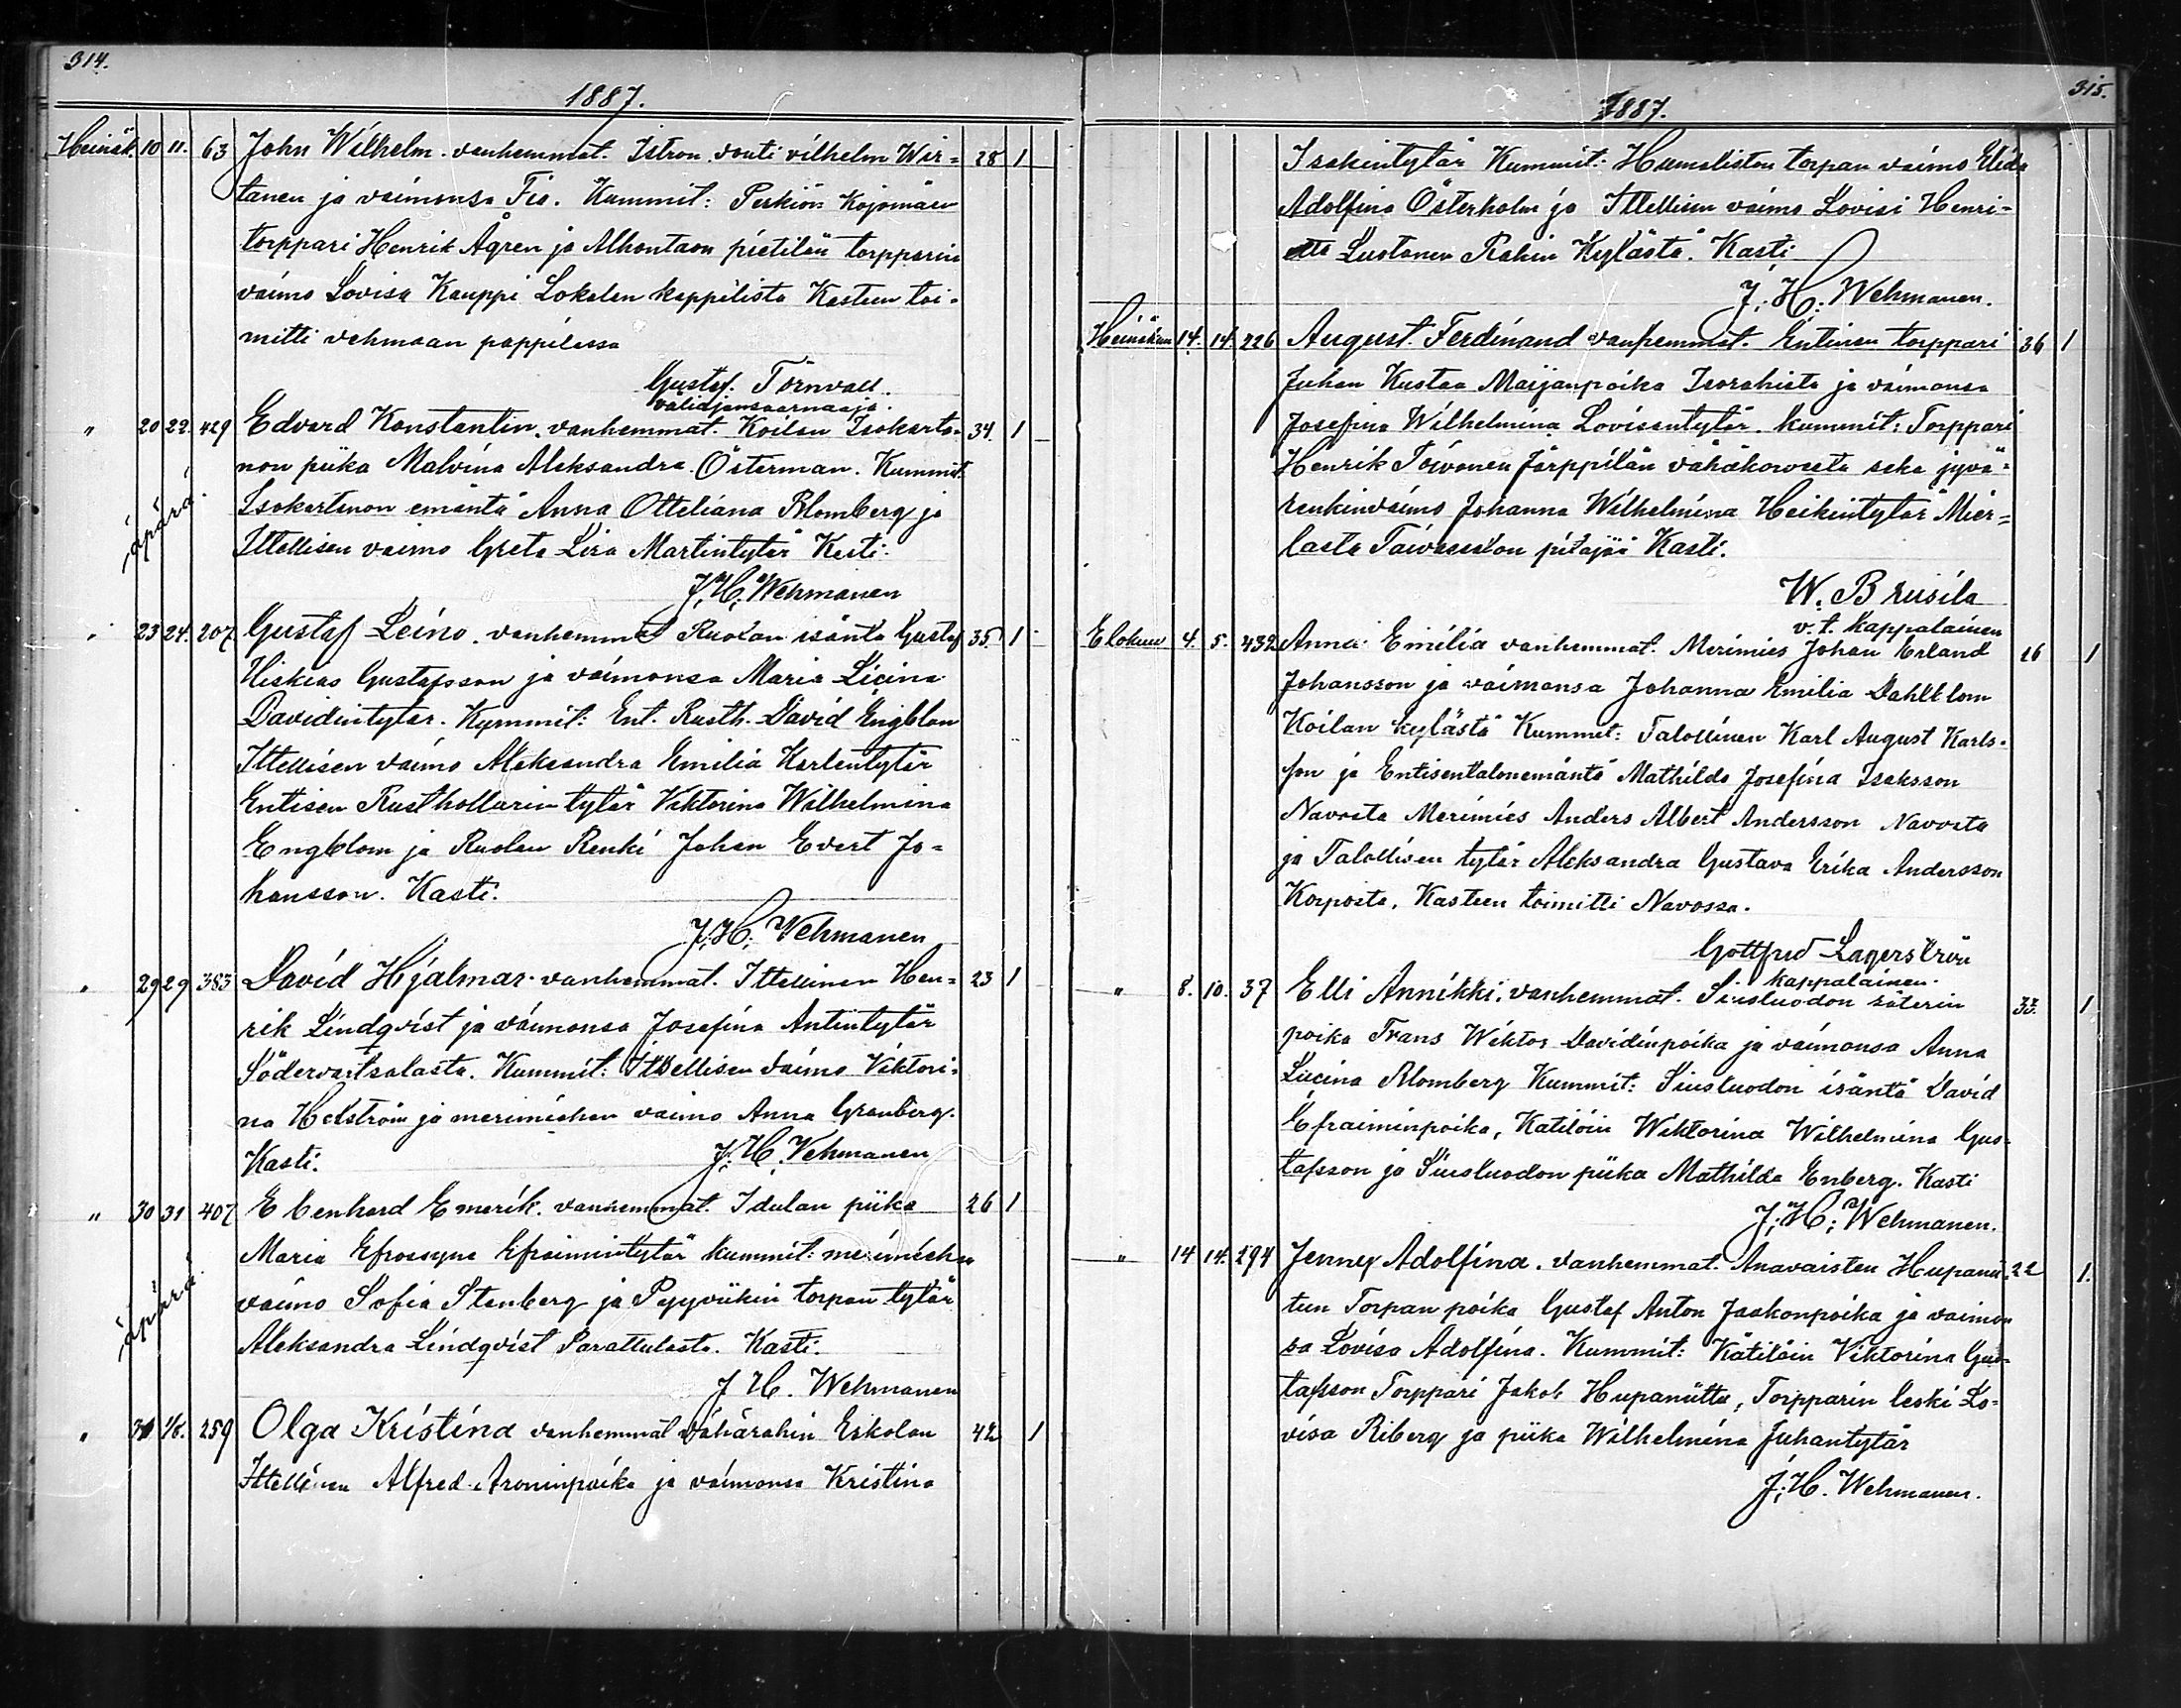 314.
1887.
Heinäk. 10 11. 63 John Wilhelm. vanhemmat. Istron vouti vilhelm Wir= 28 1
tanen ja vaimonsa Fia. Kummit: Perkiön Kojomäen
torppari Henrik Ågren ja Alhontaan pietilän torpparin
vaimo Lovisa Kauppi Lokalan kappelista Kasteen toi-
mitti vehmaan pappilassa
Gustaf. Törnvall.
välidjansaarnaaja.
" 20 22. 429 Edvard Konstantin. vanhemmat. Koilan Isokarta- 34 1
non piika Malvina Aleksandra Österman. Kummit:
Isokartanon emäntä Anna Otteliana Blomberg ja
äpärä
Ittellisen vaimo Greta Lisa Martintytär Kasti.
J. H. Wehmanen
" 23 24. 207 Gustaf Leino. vanhemmat Ruolan isäntä Gustaf 35 1
Hiskias Gustafsson ja vaimonsa Maria Licina
Davidintytär. Kummit: Ent. Rusth. David Engblom
Ittellisen vaimo Aleksandra Emilia Karlentytär
Entisen Rusthollarin tytär Viktorina Wilhelmina
Engblom ja Ruolan Renki Johan Evert Jo=
hansson. Kasti.
J. H. Vehmanen
" 29 29 383 David Hjalmar. vanhemmat. Ittellinen Hen= 23 1
rik Lindqvist ja vaimonsa Josefina Antintytär
Södervartsalasta. Kummit: Ittellisen vaimo Viktori-
na Hellström ja merimiehen vaimo Anna Granberg.
Kasti. J. H. Vehmanen
" 30 31 407 Ebenhard Emerik. vanhemmat. Idulan piika 26 1
Maria Efrosyne Efraimintytär kummit: merimiehen
vaimo Sofia Stenberg ja Pyyviikin torpan tytär
äpärä
Aleksandra Lindqvist Parattulasta. Kasti.
J H. Wehmanen
" 31 1/8. 259 Olga Kristina vanhemmat Vähärahin Eskolan 42 1
Ittellinen Alfred Aroninpoika ja vaimonsa Kristina
315.
1887.
Isakintytär Kummit: Humaliston torpan vaimo Elida
Adolfina Österholm ja Ittellisen vaimo Lovisi Henri-
etta Lustonen Rahin Kylästä. Kasti
J. H. Wehmanen.
Heinäkuu 14. 14. 226 August Ferdinand vanhemmat. Entinen torppari 36 1
Juhan Kustaa Maijanpoika Isorahista ja vaimonsa
Josefina Wilhelmina Lovisantytär. kummit: Torppari
Henrik Toivonen Järppilän vähäkoweeta seka jyvä=
renkinvaimo Johanna Wilhelmina Heikintytär Mier=
lasta Taivassalon pitäjää Kasti.
W. Brusila
v. t. kappalainen
Elokuu 4. 5. 432 Anna Emilia vanhemmat. Merimies Johan Erland 26 1
Johansson ja vaimonsa Johanna Emilia Dahlblom
Koilan kylästä Kummit: Talollinen Karl August Karls-
son ja Entisentalonemäntä Mathilda Josefina Isaksson
Navosta Merimies Anders Albert Andersson Navosta
ja Talollisen tytär Aleksandra Gustava Erika Andersson
Korposta. Kasteen toimitti Navossa.
Gottfred Lagerström
kappalainen.
" 8. 10. 37 Elli Annikki. vanhemmat. Siusluodon säterin 33. 1
poika Frans Wiktor Davidinpoika ja vaimonsa Anna
Lucina Blomberg Kummit: Siusluodon isäntä David
Efraiminpoika, Katilöin Wiktorina Wilhelmina Gus-
tafsson ja Siusluodon piika Mathilda Enberg. Kasti
J. H. Wehmanen.
" 14 14. 294 Jenney Adolfina. vanhemmat. Anavaisten Hupanii- 22 1.
tun Torpan poika Gustaf Anton Jaakonpoika ja vaimon
sa Lovisa Adolfina. Kummit: Kätilöin Viktorina Gus-
tafsson Torppari Jakob Hupaniittu, Torpparin leski Lo-
visa Riberg ja piika Wilhelmina Juhantytär
J. H. Wehmanen.